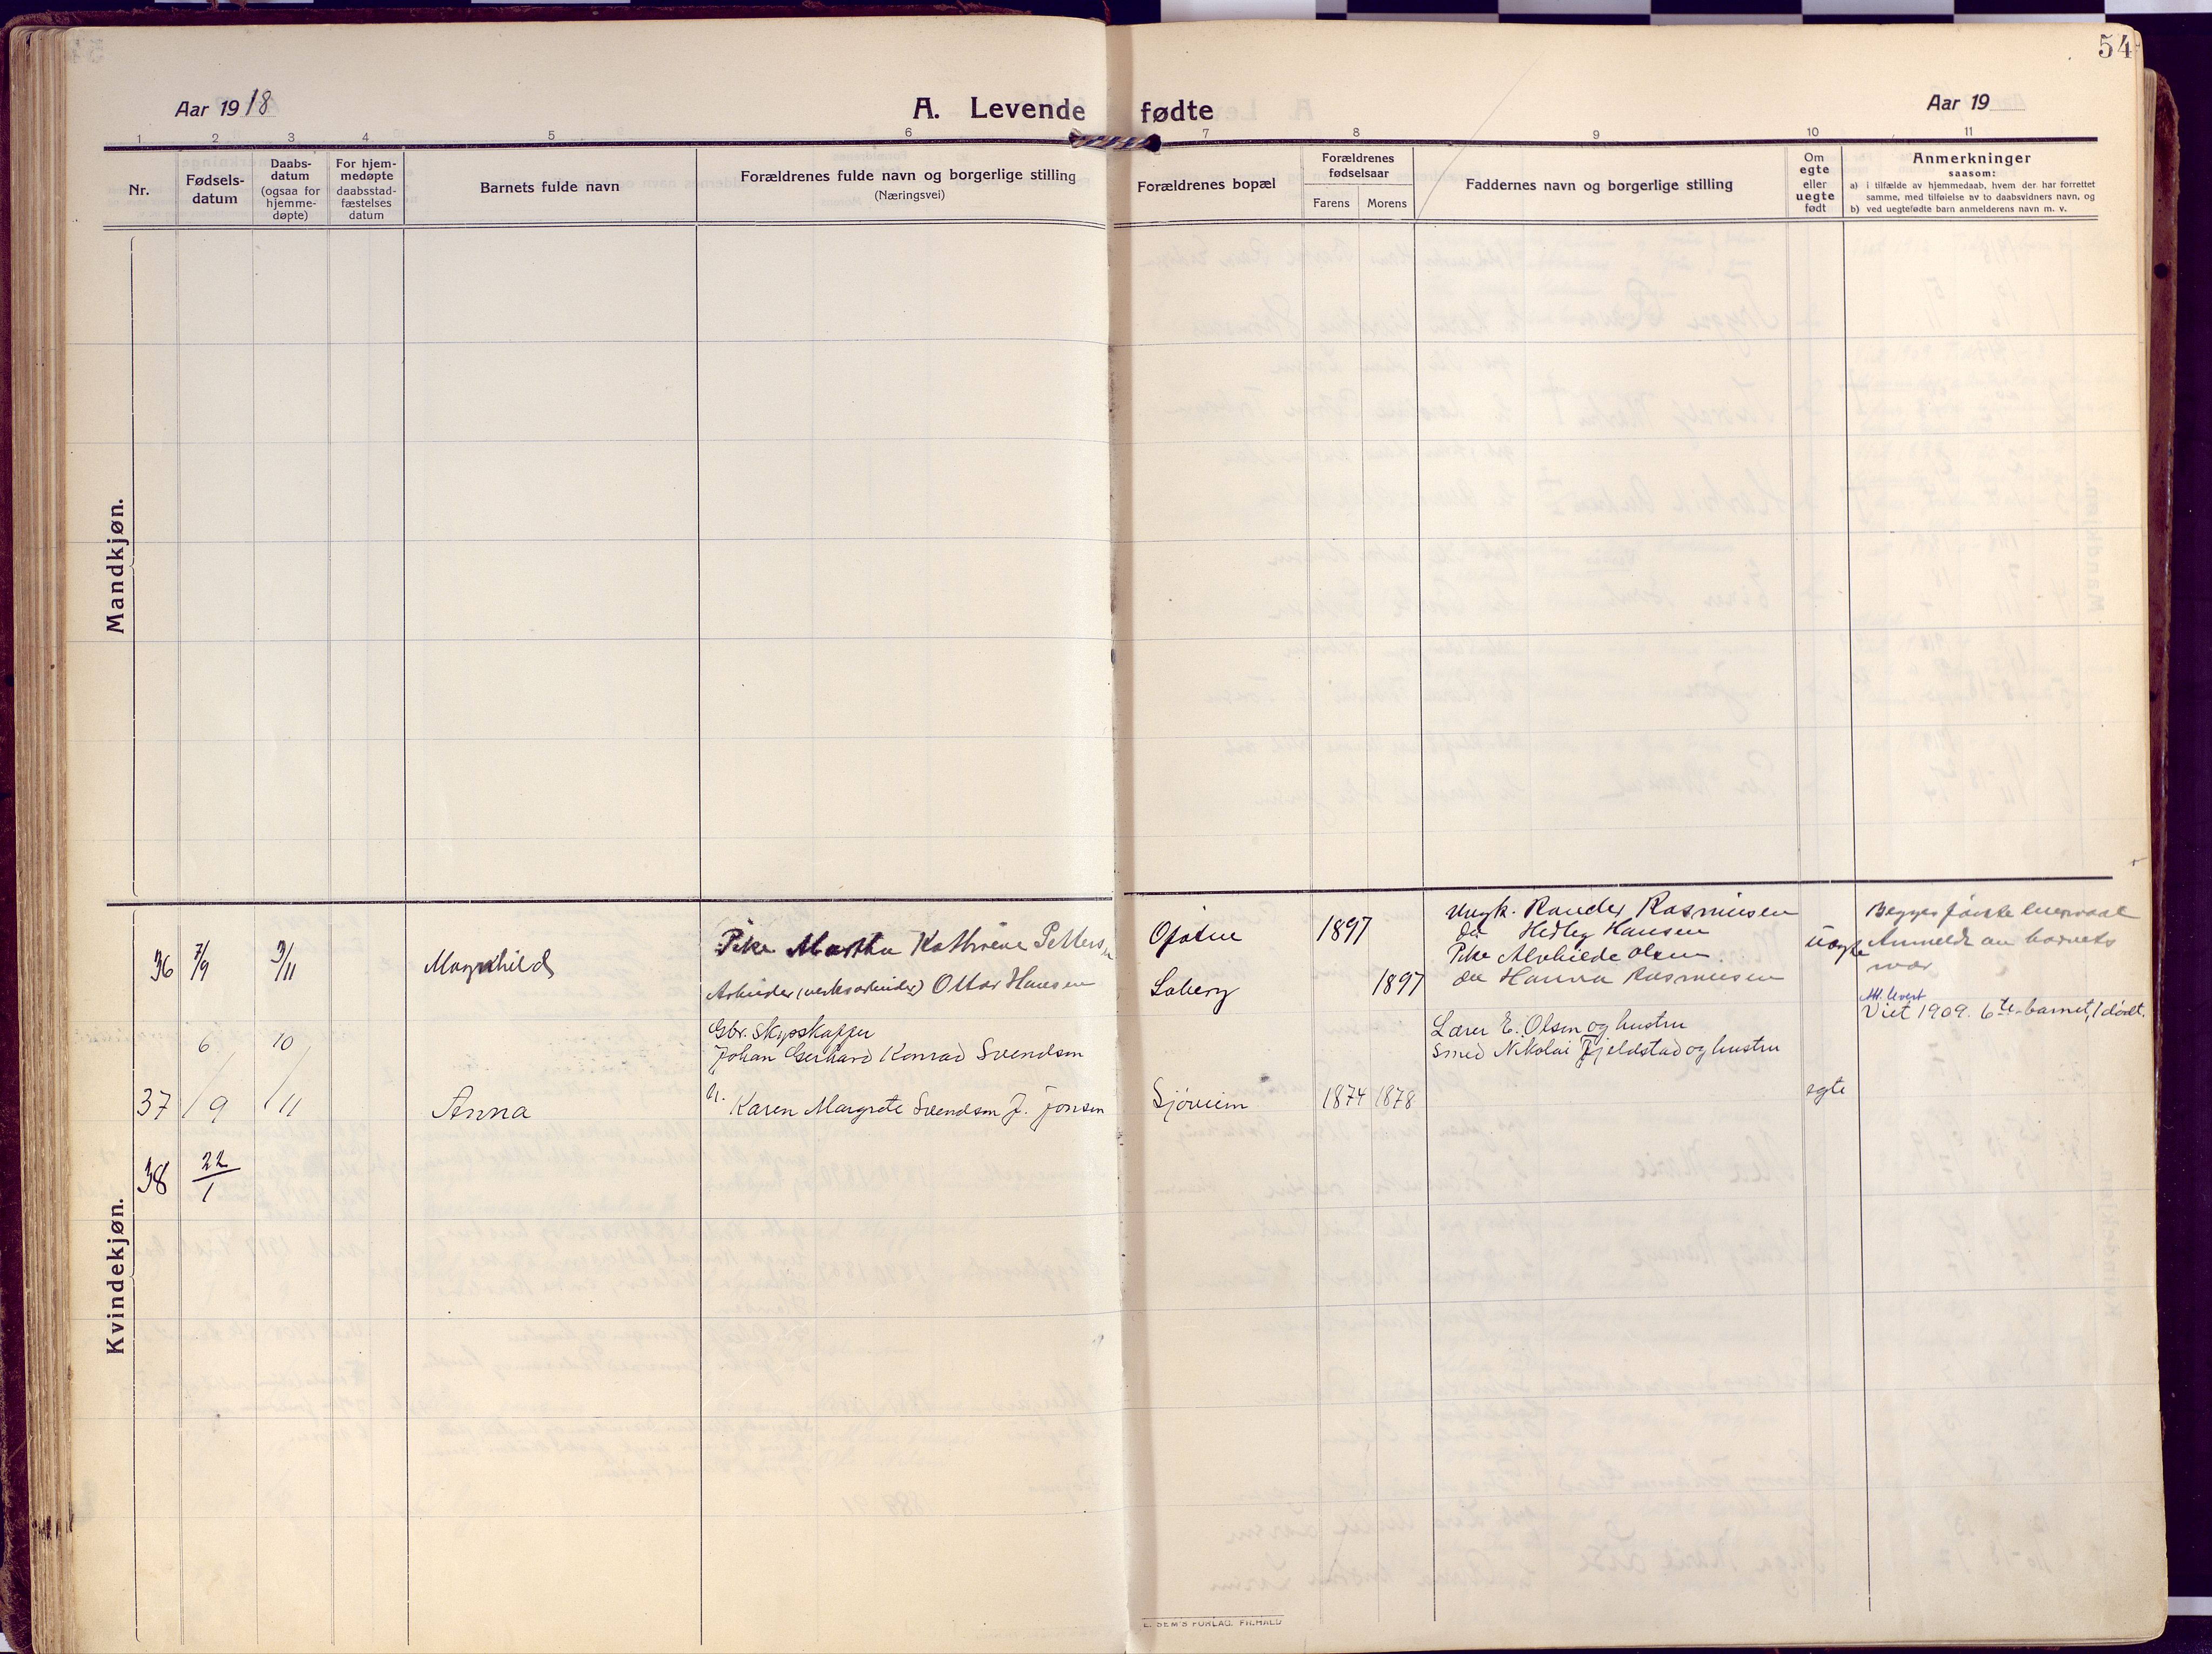 54
Aar 1918
A. Levende fødte
Aar 19
1 2 3 4 5 6 7 8 9 10 11
Nr.
Fødsels-
datum
Daabs-
datum
(ogsaa for
hjemme-
døpte)
For hjem-
medøpte
daabsstad-
fæstelses
datum
Barnets fulde navn
Forældrenes fulde navn og borgerlige stilling
(Næringsvei)
Forældrenes bopæl
Forældrenes
fødselsaar
Farens Morens
Faddernes navn og borgerlige stilling
Om
egte
eller
uegte
født
Anmerkninger
saasom:
a) i tilfælde av hjemmedaab, hvem der har forrettet
samme, med tilføielse av to daabsvidners navn, og
b) ved uegtefødte barn anmelderens navn m. v.
Mandkjøn.
Kvindekjøn.
36 7/9 3/11 Magnhild
Pike Martha Kathrine Petters
Arbeider (verksarbeider) Ottar Hansen
1897
1897
Ungk. Rasmusen
do Hedley Hansen
Pike Alvhilde Olsen
do Hanna Rasmusen
uegte
Begges første
Anmeldt av barnets
mor
37 6/9 10/11 Anna
Gbr. skipskapper
Johan Gerhard Konrad Svendsen
h. Karen Margrete Svendsen f. Jonsen
Sjøveien
1874 1878
Lærer E. Olsen og hustru
smed Nikolai Fjeldstad og hustru
egte
Att. levert
Viet 1909. 6te barnet, 1 dødt.
38 22/1
E. SEM'S FORLAG. FR.HALD